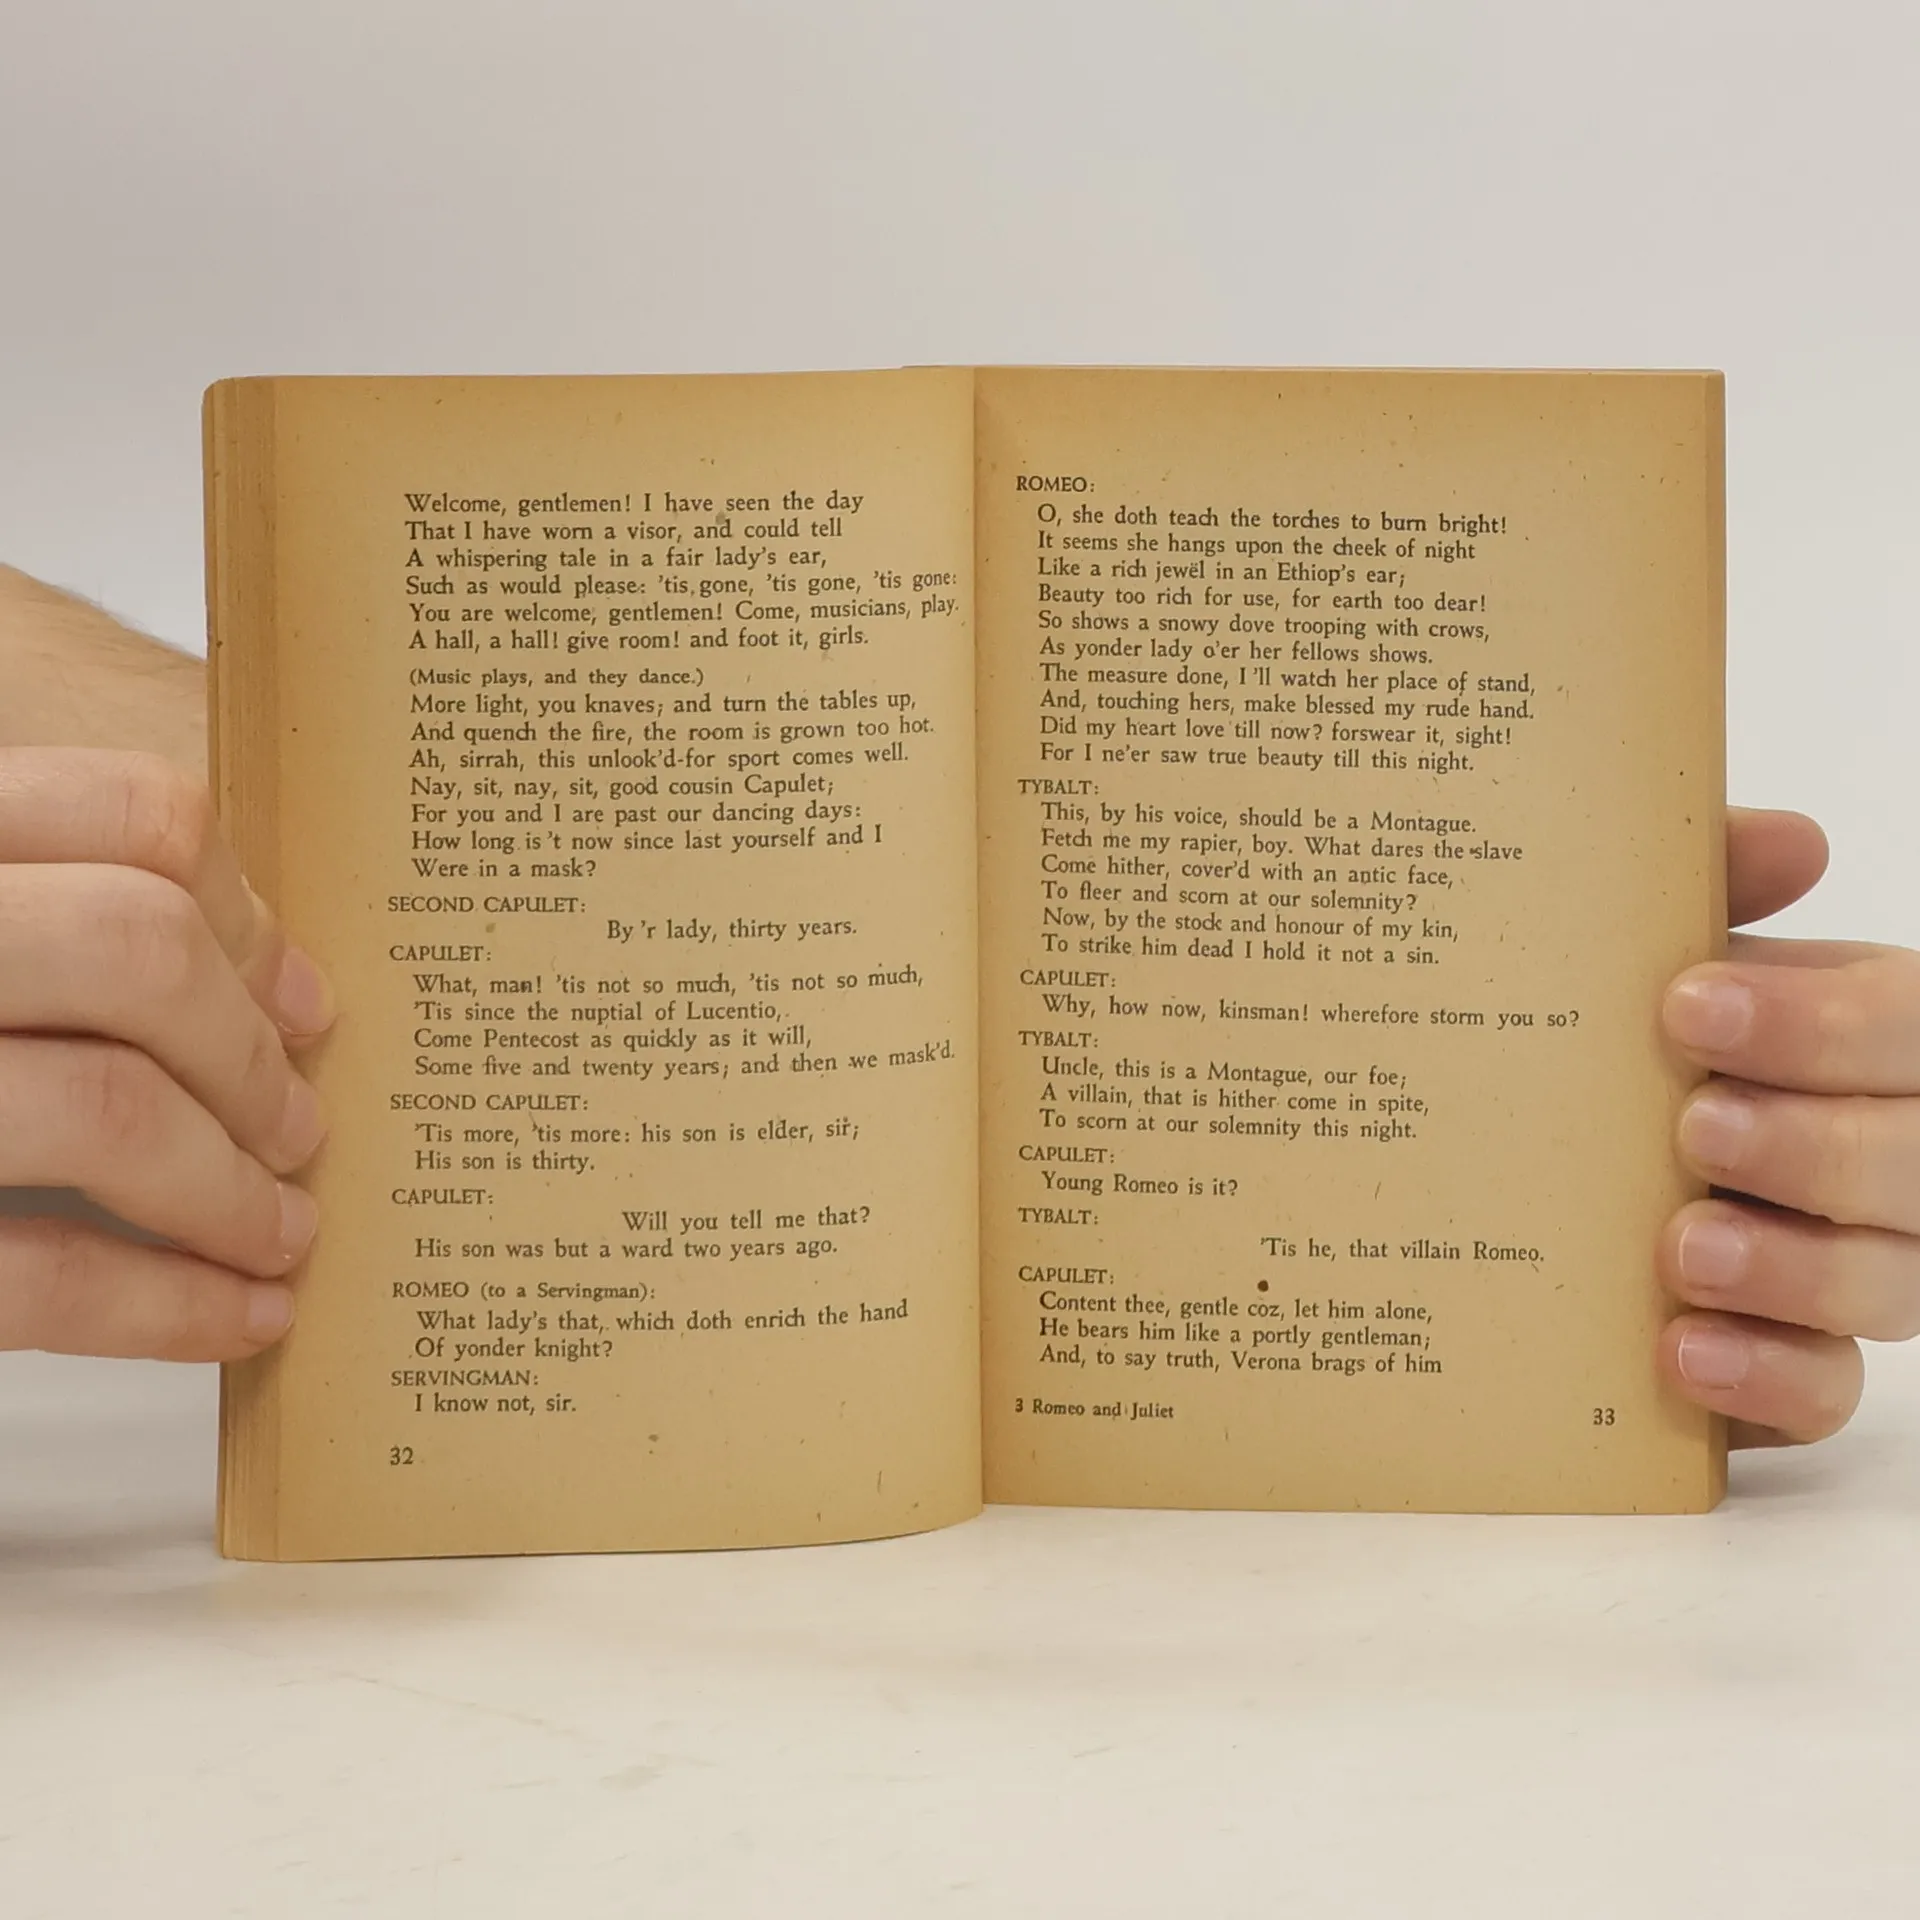 Welcome, gentlemen! I have seen the day
That I have worn a visor, and could tell
A whispering tale in a fair lady's ear,
Such as would please: 'tis gone, 'tis gone, 'tis gone:
You are welcome, gentlemen! Come, musicians, play.
A hall, a hall! give room! and foot it, girls.
(Music plays, and they dance.)
More light, you knaves; and turn the tables up,
And quench the fire, the room is grown too hot.
Ah, sirrah, this unlook'd-for sport comes well.
Nay, sit, nay, sit, good cousin Capulet;
For you and I are past our dancing days:
How long is 't now since last yourself and I
Were in a mask?
SECOND CAPULET:
By 'r lady, thirty years.
CAPULET:
What, man! 'tis not so much, 'tis not so much,
'Tis since the nuptial of Lucentio,
Come Pentecost as quickly as it will,
Some five and twenty years; and then we mask'd.
SECOND CAPULET:
'Tis more, 'tis more: his son is elder, sir;
His son is thirty.
CAPULET:
Will you tell me that?
His son was but a ward two years ago.
ROMEO (to a Servingman):
What lady's that, which doth enrich the hand
Of yonder knight?
SERVINGMAN:
I know not, sir.
32
ROMEO:
O, she doth teach the torches to burn bright!
It seems she hangs upon the cheek of night
Like a rich jewel in an Ethiop's ear;
Beauty too rich for use, for earth too dear!
So shows a snowy dove trooping with crows,
As yonder lady o'er her fellows shows.
The measure done, I 'll watch her place of stand,
And, touching hers, make blessed my rude hand.
Did my heart love till now? forswear it, sight!
For I ne'er saw true beauty till this night.
TYBALT:
This, by his voice, should be a Montague.
Fetch me my rapier, boy. What dares the slave
Come hither, cover'd with an antic face,
To fleer and scorn at our solemnity?
Now, by the stock and honour of my kin,
To strike him dead I hold it not a sin.
CAPULET:
Why, how now, kinsman! wherefore storm you so?
TYBALT:
Uncle, this is a Montague, our foe;
A villain, that is hither come in spite,
To scorn at our solemnity this night.
CAPULET:
Young Romeo is it?
TYBALT:
'Tis he, that villain Romeo.
CAPULET:
Content thee, gentle coz, let him alone,
He bears him like a portly gentleman;
And, to say truth, Verona brags of him
3 Romeo and Juliet
33